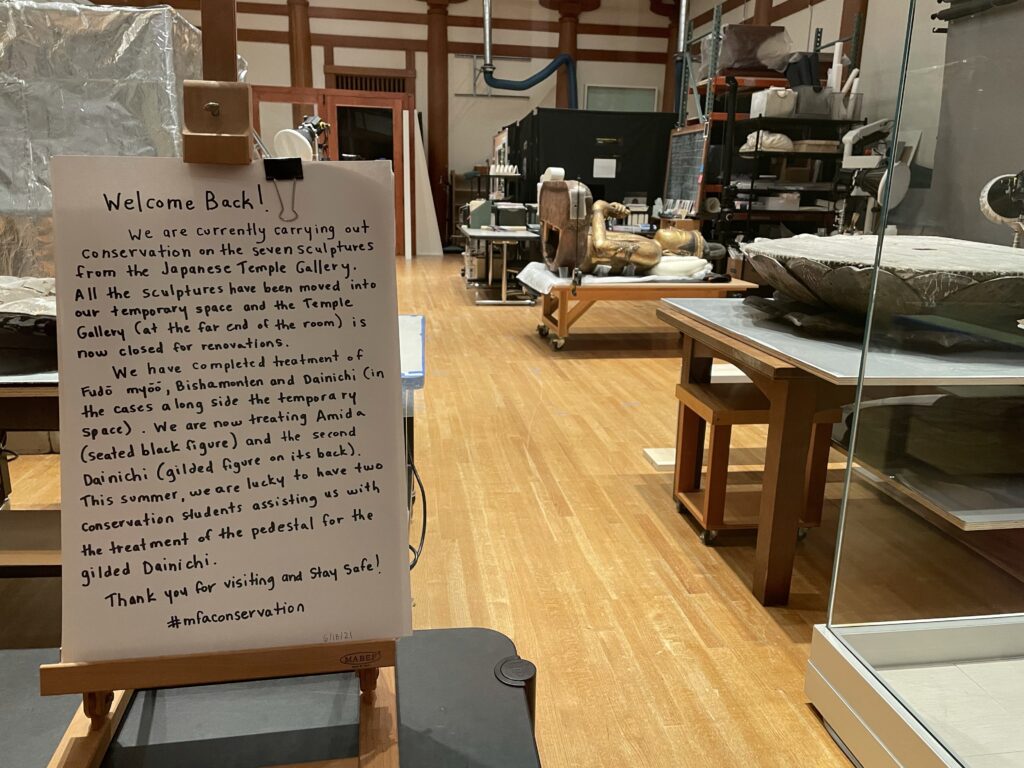 Welcome Back!
We are currently carrying out
conservation on the seven sculptures
from the Japanese Temple Gallery.
All the sculptures have been moved into
our temporary space and the Temple
Gallery (at the far end of the room) is
now closed for renovations.
We have completed treatment of
Fudō myōō, Bishamonten and Dainichi (in
the cases along side the temporary
space). We are now treating Amida
(seated black figure) and the second
Dainichi (gilded figure on its back).
This summer, we are lucky to have two
conservation students assisting us with
the treatment of the pedestal for the
gilded Dainichi.
Thank you for visiting and stay safe!
#mfaconservation
6/16/21
MABEF